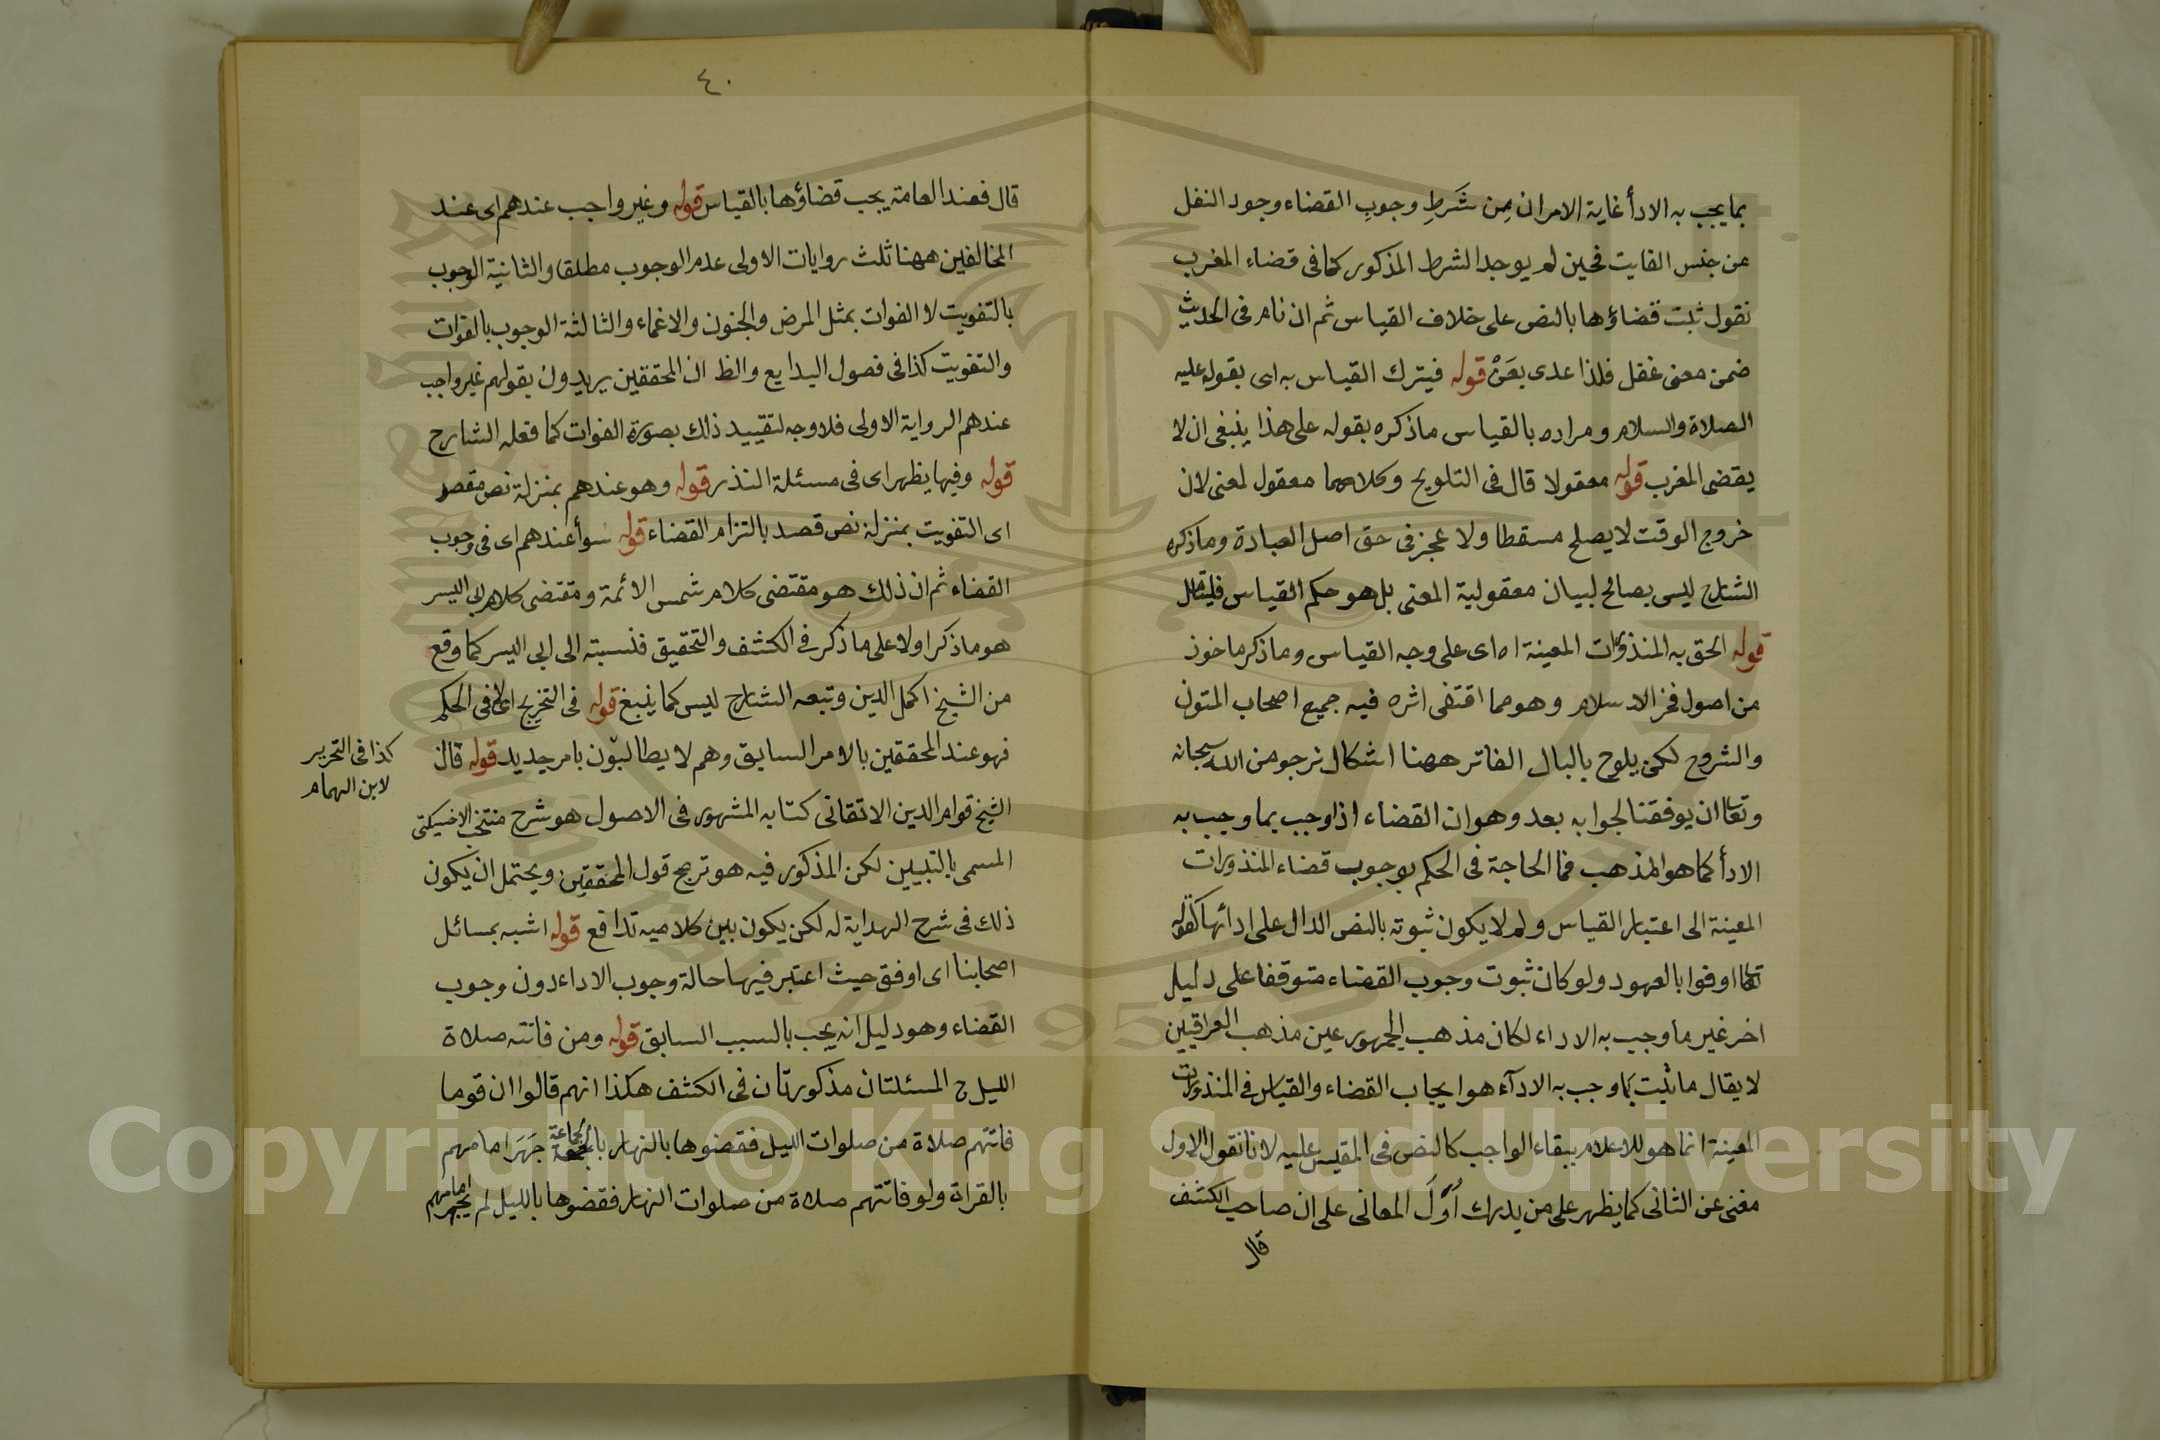 بما يجب به الادأ غاية الامران مِن شَرطِ وجوبِ القضاء وجود النفل
من جنس الفايت فحين لم يوجد الشرط المذكور كما فى قضاء المغرب
نقول ثبت قضاؤها بالنص على خلاف القياس ثم ان نام فى الحديث
ضمن معنى غفل فلذا عدى بعَنْ قوله فيترك القياس به اى بقوله عليه
الصلاة والسلام ومراده بالقياس ما ذكره بقوله على هذا ينبغى ان لا
يقضى المغرب قوله معقولا قال فى التلويح وكلاهما معقول لمعنى لان
خروج الوقت لا يصلح مسقطا ولا عجز فى حق اصل العبادة وما ذكره
الشارح ليس بصالح لبيان معقولية المعنى بل هو حكم القياس فليتأمل
قوله الحق به المنذورات المعينة اه اى على وجه القياس وما ذكر ماخوذ
من اصول فخر الاسلام وهو مما اقتفى اثره فيه جميع اصحاب المتون
والشروح لكن يلوح بالبال الفاتر ههنا اشكال نرجو من الله سبحانه
وتعا ان يوفقنا لجوابه بعد وهو ان القضاء اذا وجب بما وجب به
الادأ كما هو المذهب فما الحاجة فى الحكم بوجوب قضاء المنذورات
المعينة الى اعتبار القياس ولم لا يكون ثبوته بالنص الدال على ادائها كقوله
تعا اوفوا بالعهود ولو كان ثبوت وجوب القضاء متوقفا على دليل
اخر غير ما وجب به الاداء لكان مذهب الجمهور عين مذهب العراقيين
لا يقال ما ثبت بما وجب به الادآء هو ايجاب القضاء والقياس فى المنذورات
المعينة انما هو للاعلام ببقاء الواجب كالنص فى المقيس عليه لانا نقول الاول
مغنى عن الثانى كما يظهر على من يدرك اُوَّلَ المعانى على ان صاحب الكشف
قال
٤٠
قال فعند العامة يجب قضاؤها بالقياس قوله وغير واجب عندهم اى عند
المخالفين ههنا ثلث روايات الاولى عدم الوجوب مطلقا والثانية الوجوب
بالتفويت لا الفوات بمثل المرض والجنون والاغماء والثالثة الوجوب بالفوات
والتفويت كذا فى فصول البدايع والظ ان المحققين يريدون بقولهم غير واجب
عندهم الرواية الاولى فلا وجه لتقييد ذلك بصورة الفوات كما فعله الشارح
قوله وفيها يظهر اى فى مسئلة النذر قوله وهو عندهم بمنزلة نص مقصد
اى التفويت بمنزلة نص قصد بالتزام القضاء قوله سوأ عندهم اى فى وجوب
القضاء ثم ان ذلك هو مقتضى كلام شمس الائمة ومقتضى كلام ابى اليسر
هو ما ذكر اولا على ما ذكر فى الكشف والتحقيق فنسبته الى ابى اليسر كما وقع
من الشيخ اكمل الدين وتبعه الشارح ليس كما ينبغ قوله فى التخريج اى لا فى الحكم
فهو عند المحققين بالامر السابق وهم لا يطالبون بامر جديد قوله قال
كذا فى التحرير
لابن الهمام
الشيخ قوام الدين الاتقانى كتابه المشهور فى الاصول هو شرح منتخب الاخسيكتى
المسمى بالتبيين لكن المذكور فيه هو ترجح قول المحققين ويحتمل ان يكون
ذلك فى شرح الهداية له لكن يكون بين كلاميه تدافع قوله اشبه بمسائل
اصحابنا اى اوفق حيث اعتبر فيها حالة وجوب الاداء دون وجوب
القضاء وهو دليل انه يجب بالسبب السابق قوله ومن فاتته صلاة
الليل ح المسئلتان مذكورتان فى الكشف هكذا انهم قالوا ان قوما
فاتتهم صلاة من صلوات الليل فقضوها بالنهار بالجماعة جَهَرَ امامهم
بالقراة ولو فاتتهم صلاة من صلوات النهار فقضوها بالليل لم يجهر امامهم
Copyright © King Saud University